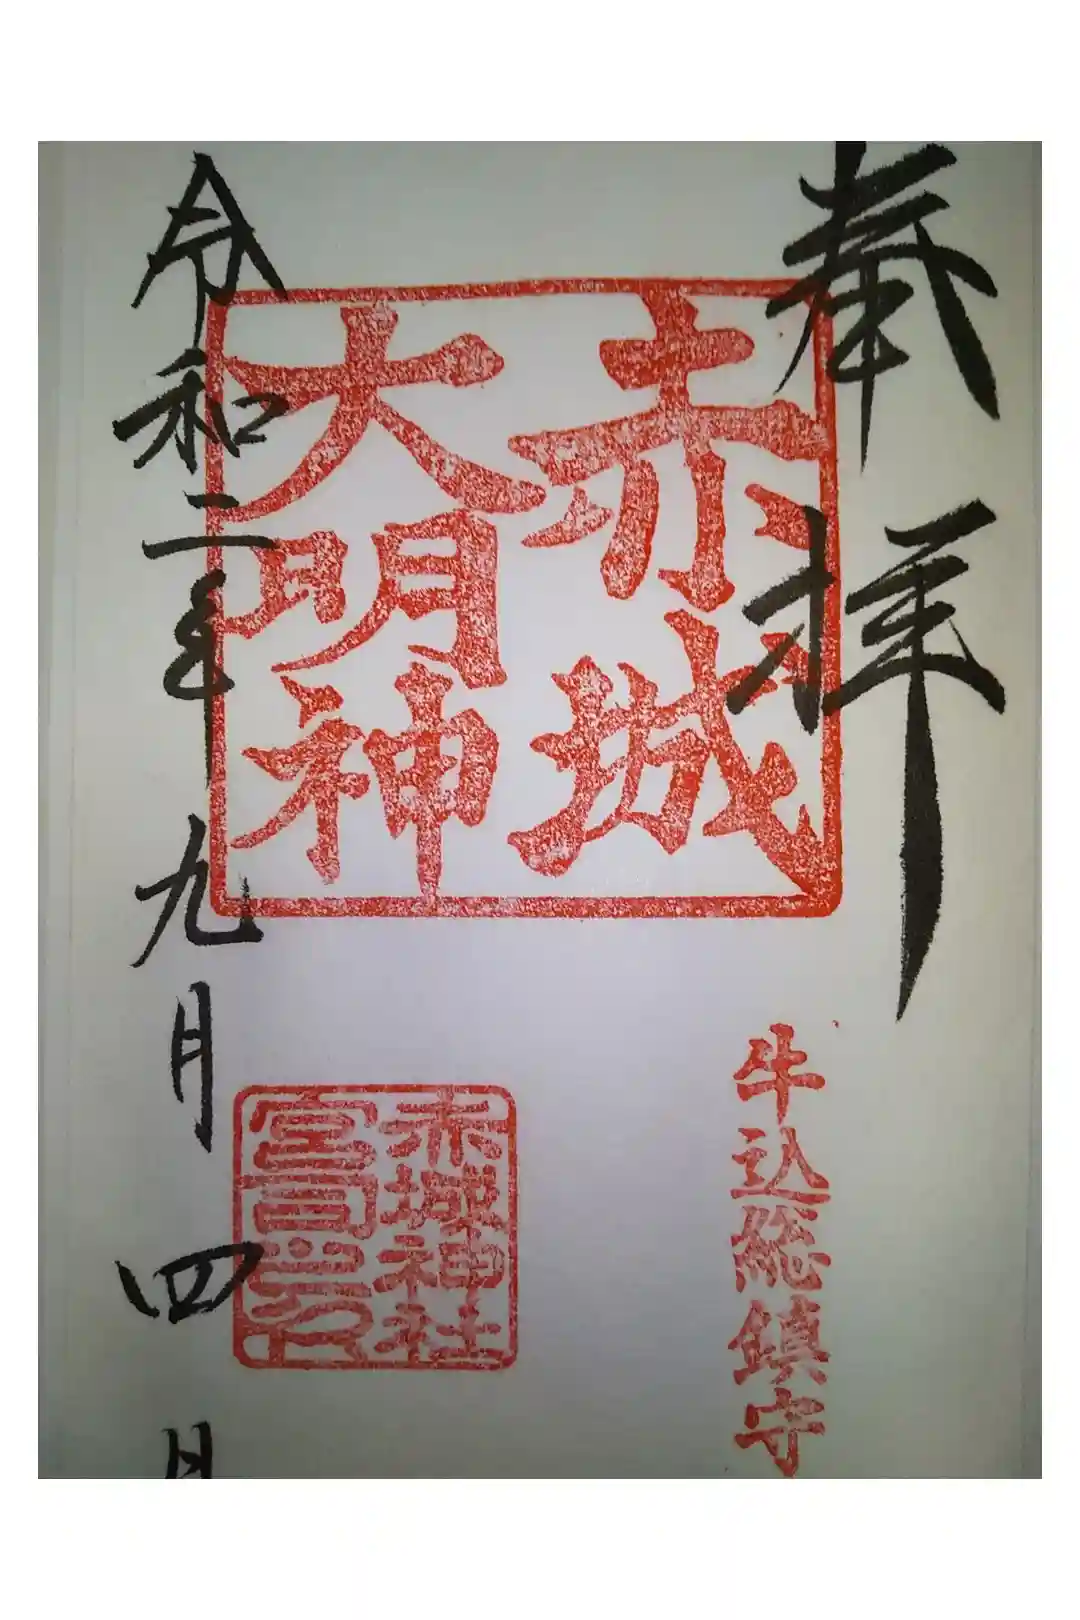 奉拝
牛込総鎮守
赤城
大明神
赤城神社
令和二年九月四日